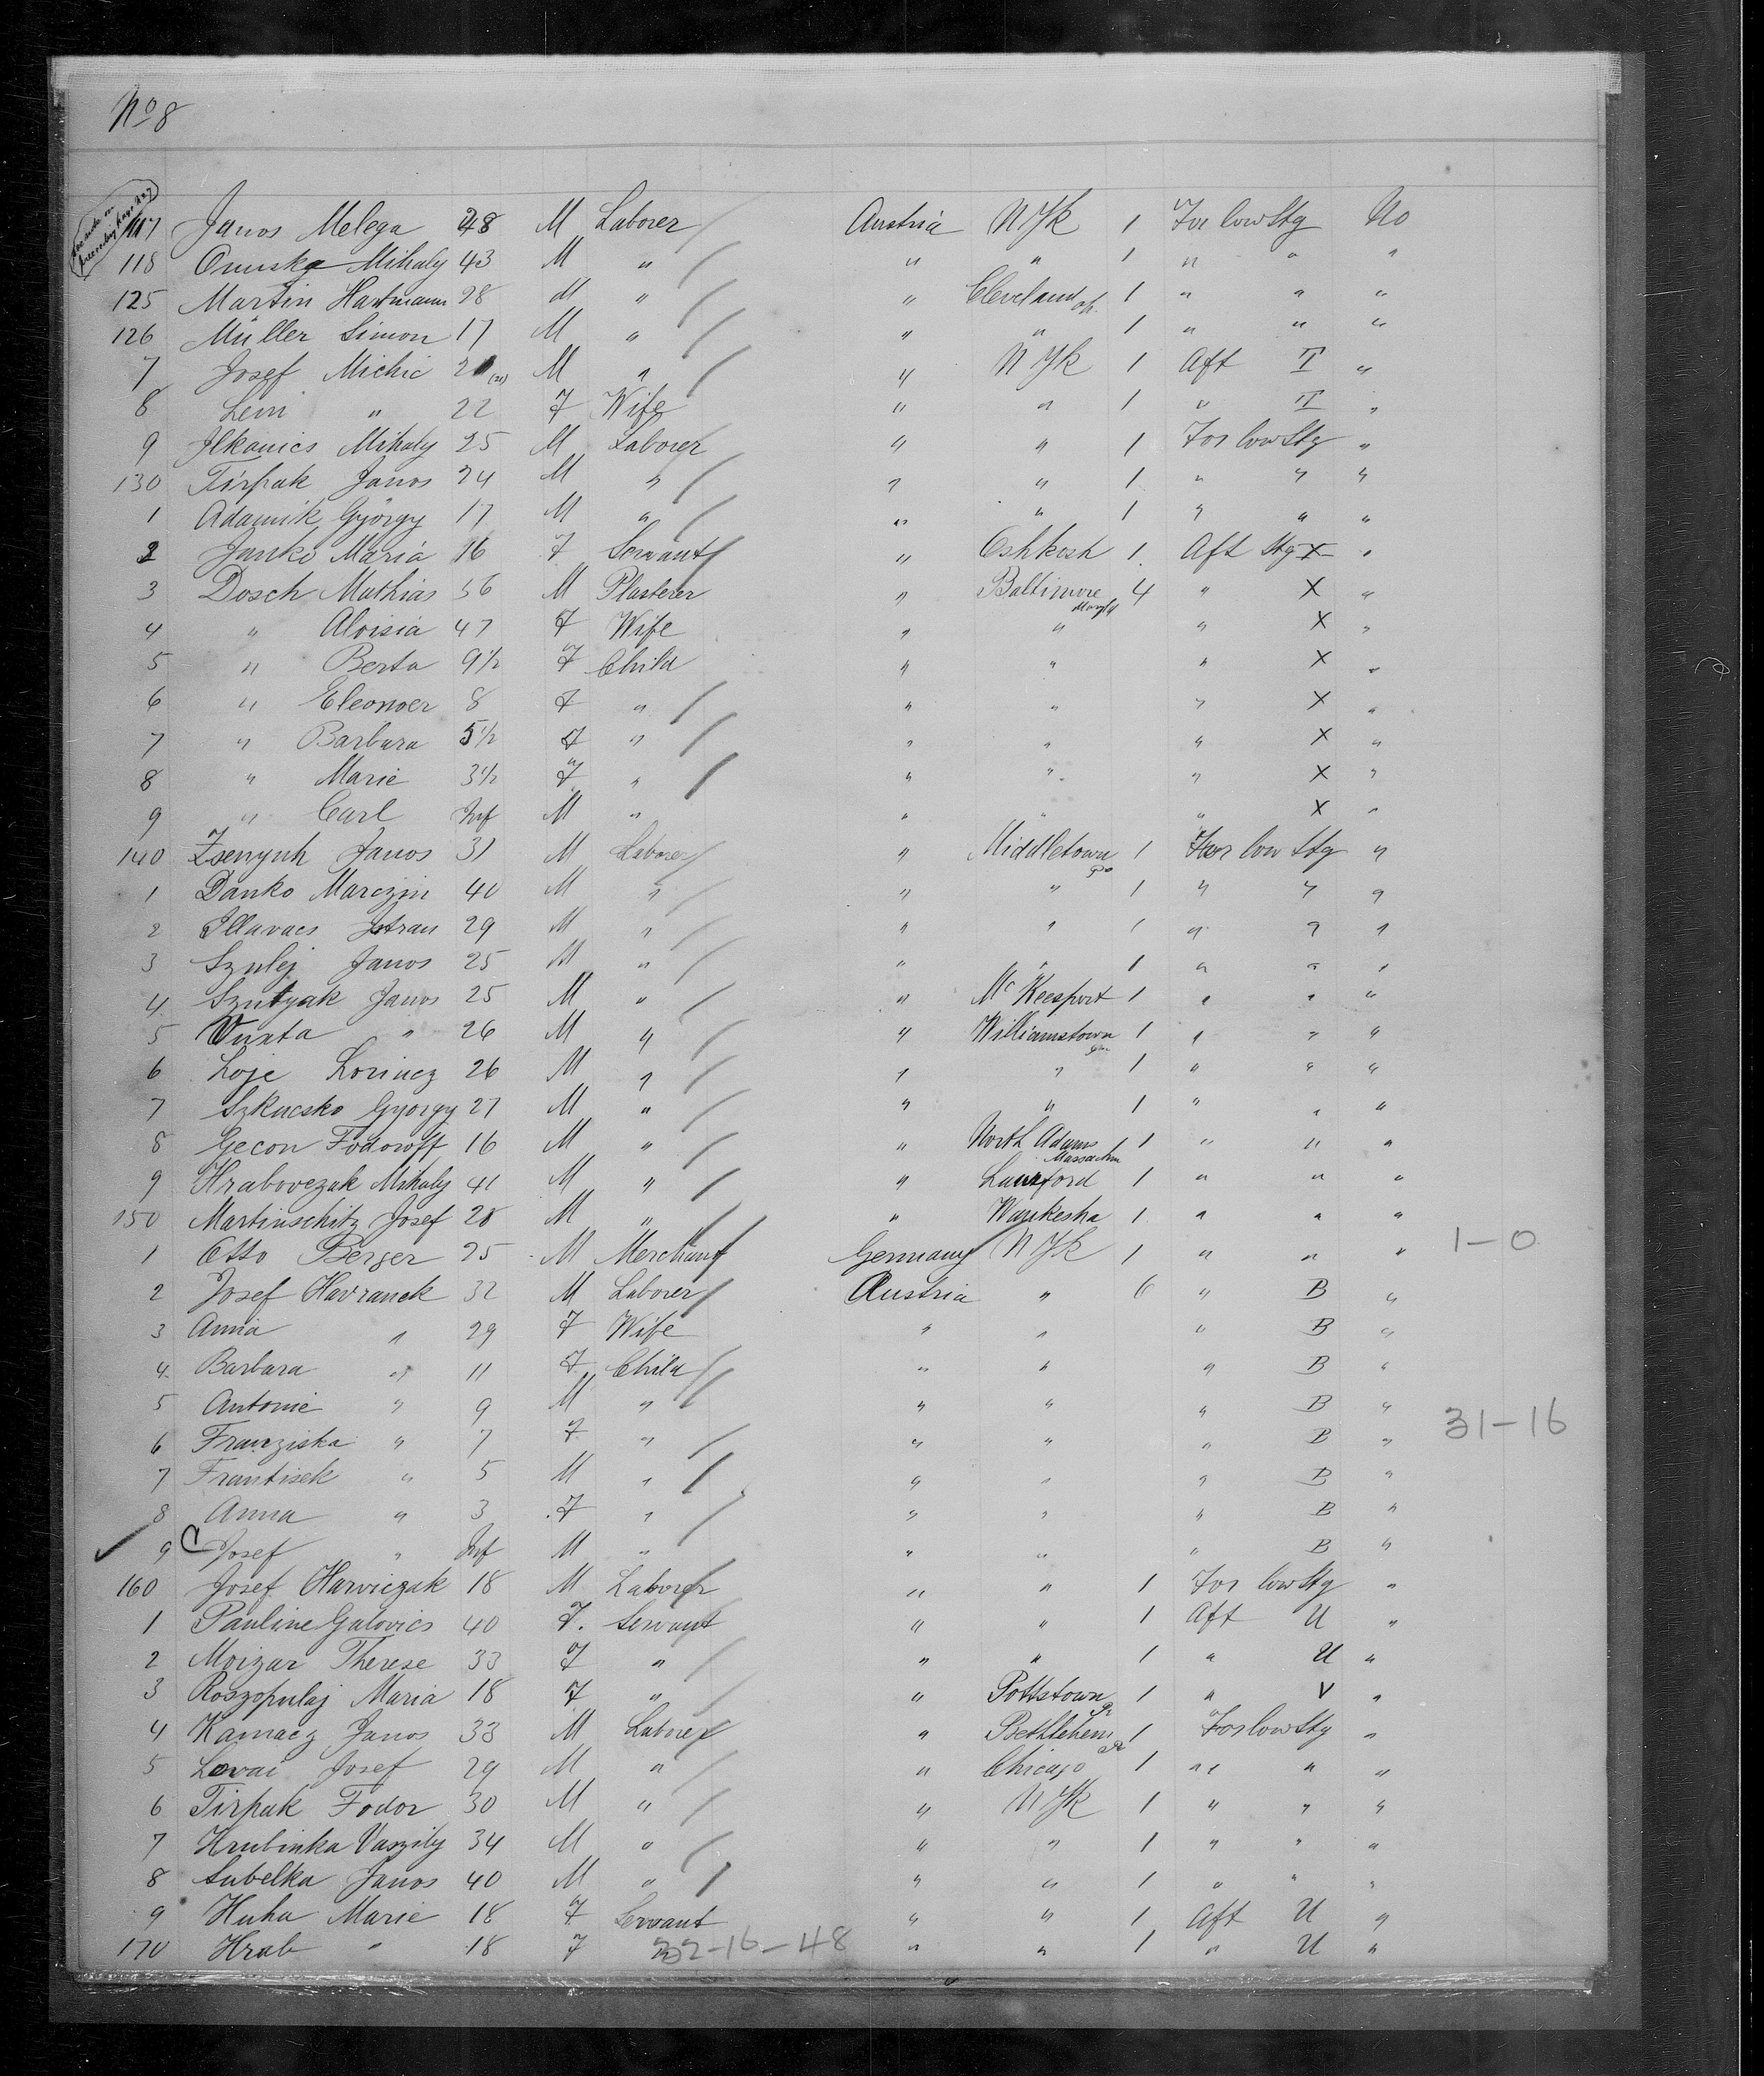 No 8
117 Janos Melega 28 M Laborer Austria N Yk 1 For low Stg No
118 Mihaly 43 M " " " 1 " " "
125 Martin Hartmann 28 M " " Cleveland oh. 1 " " "
126 Müller Simon 17 M " " " 1 " " "
7 Josef Michic 2 (21) M " " N Yk 1 Aft T "
8 Leni " 22 F Wife " " 1 " T "
9 Jlkanics Mihaly 25 M Laborer " " 1 For low Stg "
130 Tirpak Janos 24 M " " " 1 " " "
1 Adamik György 17 M " " " 1 " " "
2 Janko Maria 16 F Servant " Oshkosh 1 Aft Stg X "
3 Dosch Mathias 56 M Plasterer " Baltimore 4 " X "
4 " Aloisia 47 F Wife " " " X "
5 " Berta 9½ F Child " " " X "
6 " Eleonoer 8 F " " " " X "
7 " Barbara 5½ F " " " " X "
8 " Marie 3½ F " " " " X "
9 " Carl Inf M " " " " X "
140 Zsenyuh Janos 31 M Laborer " Middletown Pa 1 For low Stg "
1 Danko Marczin 40 M " " " 1 " " "
2 Illavacs 29 M " " " 1 " " "
3 Szulej Janos 25 M " " " 1 " " "
4 Szutyak Janos 25 M " " Mc Keesport 1 " " "
5 " 26 M " " Williamstown 1 " " "
6 Loje Lorincz 26 M " " " 1 " " "
7 Szkucsko Gyorgy 27 M " " " 1 " " "
8 Gecon Fodoroff 16 M " " North Adams Massachu 1 " " "
9 Hrabovczak Mihaly 41 M " " 1 " " "
150 Martinschitz Josef 28 M " " Waukesha 1 " " "
1 Otto Berger 25 M Merchant Germany N Yk 1 " " " 1-0
2 Josef Havranek 32 M Laborer Austria " 6 " B "
3 Anna " 29 F Wife " " " B "
4 Barbara " 11 F Child " " " B "
5 Antonie " 9 M " " " " B "
6 Franziska " 7 F " " " " B " 31-16
7 Frantisek " 5 M " " " " B "
8 Anna " 3 F " " " " B "
9 Josef " Inf M " " " " B "
160 Josef Harviczak 18 M Laborer " " 1 For low Stg "
1 Pauline Galovics 40 F. Servant " " 1 Aft U "
2 Moizar Therese 33 F " " " 1 " U "
3 Roszopulaj Maria 18 F " " Pottstown Pa 1 " V "
4 Kamacz Janos 33 M Laborer " Bethlehem Pa 1 For low Stg "
5 Lovai Josef 29 M " " Chicago 1 " " "
6 Tirpak Fodor 30 M " " N Yk 1 " " "
7 Hrubinka Vaszily 34 M " " " 1 " " "
8 Subelka Janos 40 M " " " 1 " " "
9 Huha Marie 18 F Servant " " 1 Aft U "
170 Hrab " 18 F 32-16-48 " " 1 " U "